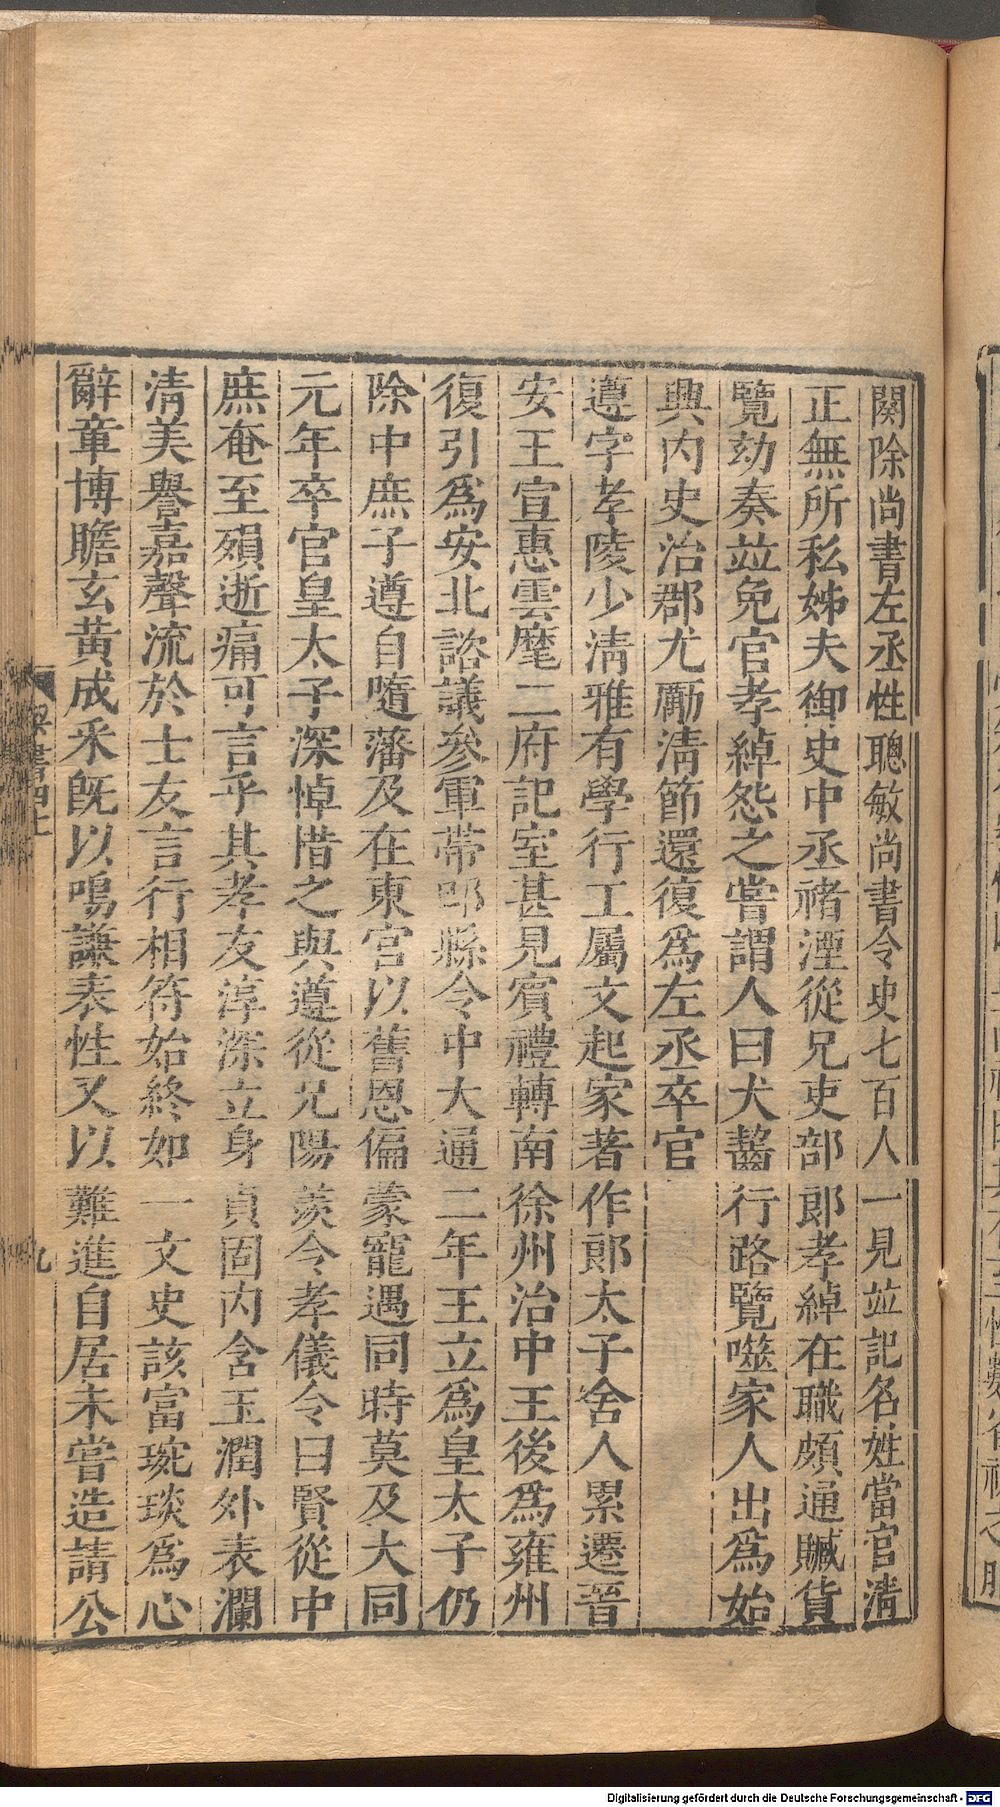 闋除尚書左丞性聰敏尚書令史七百人一見並記名姓當官淸
正無所私姊夫御史中丞褚湮從兄吏部郎孝綽在職頗通贓貨
覽劾奏並免官孝綽怨之嘗謂人曰犬齧行路覽噬家人出爲始
興內史治郡尤勵淸節還復爲左丞卒官
遵字孝陵少淸雅有學行工屬文起家著作郎太子舍人累遷晉
安王宣惠雲麾二府記室甚見賓禮轉南徐州治中王後爲雍州
復引爲安北諮議參軍帶邔縣令中大通二年王立爲皇太子仍
除中庶子遵自隨藩及在東宮以舊恩偏蒙寵遇同時莫及大同
元年卒官皇太子深悼惜之與遵從兄陽羨令孝儀令曰賢從中
庶奄至殞逝痛可言乎其孝友淳深立身貞固內含玉潤外表瀾
淸美譽嘉聲流於士友言行相符始終如一文史該富琬琰爲心
辭章博贍玄黃成采旣以鳴謙表性又以難進自居未嘗造請公
梁書四上
九
Digitalisierung gefördert durch die Deutsche Forschungsgemeinschaft - DFG